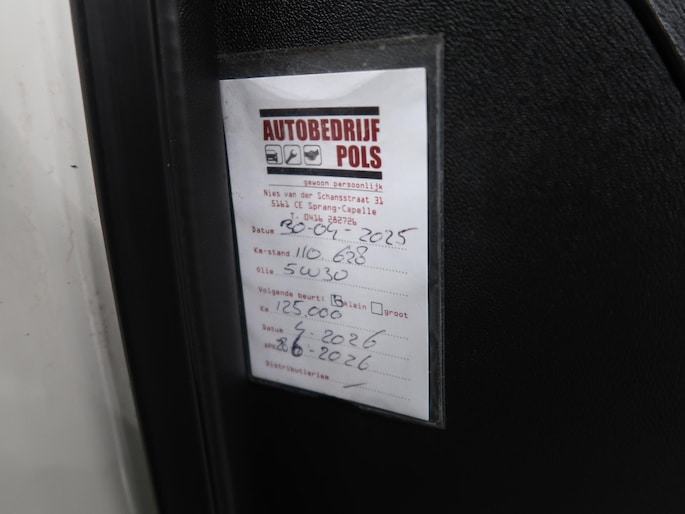 AUTOBEDRIJF
POLS
gewoon persoonlijk
Nies van der Schansstraat 31
5161 CE Sprang-Capelle
T. 0416 282726
Datum 30-04-2025
Km-stand 110.628
Olie 5W30
Volgende beurt: klein groot
Km 125.000
Datum 4-2026
6-2026
Distributieriem